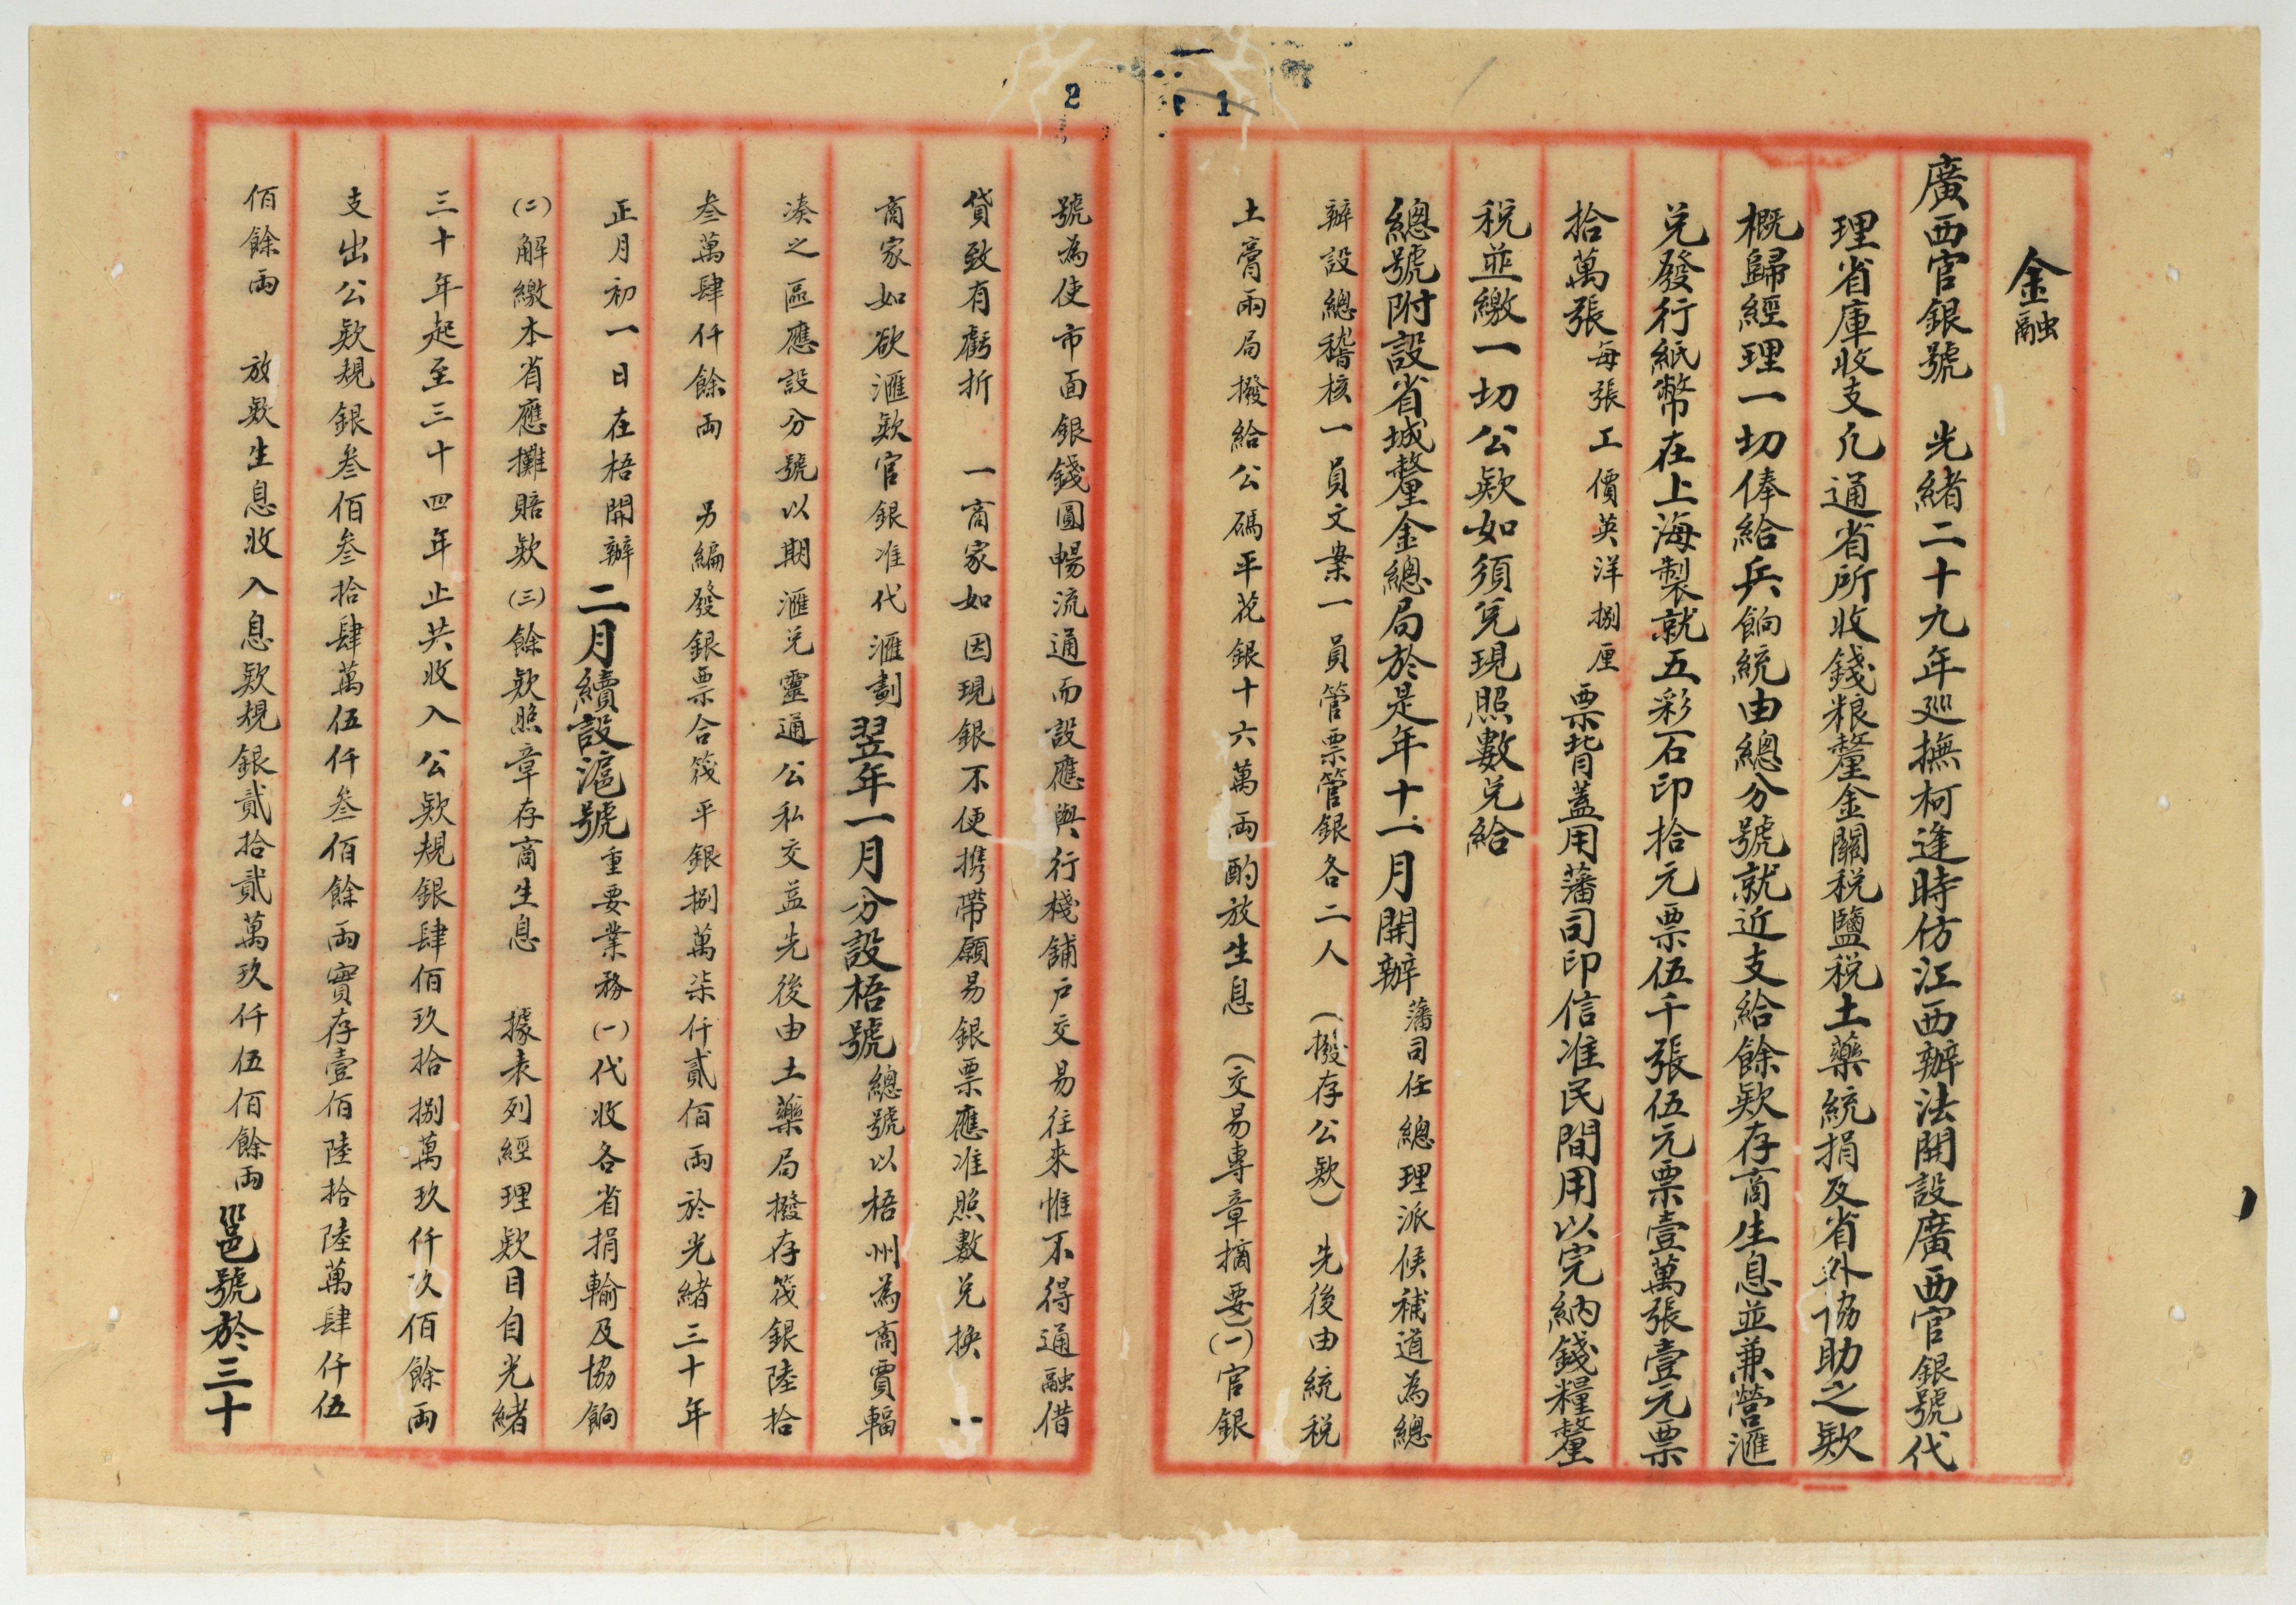 金融
廣西官銀號　光緒二十九年巡撫柯逢時仿江西辦法開設廣西官銀號代
理省庫收支凡通省所收錢粮釐金關税鹽税土藥統捐及省外協助之欵
概歸經理一切俸給兵餉統由總分號就近支給餘欵存商生息並兼營滙
兑發行紙幣在上海製就五彩石印拾元票伍千張伍元票壹萬張壹元票
拾萬張每張工價英洋捌厘票背蓋用藩司印信准民間用以完納錢糧釐
税並繳一切公欵如須兑現照數兑給
總號附設省城釐金總局於是年十一月開辦藩司任總理派候補道為總
辦設總稽核一員文案一員管票管銀各二人（撥存公欵）先後由統税
土膏兩局撥給公碼平花銀十六萬両酌放生息（交易專章摘要）（一）官銀
號為使市面銀錢圓暢流通而設應與行棧舖户交易往來惟不得通融借
貸致有虧折　一商家如因現銀不便携帶願易銀票應准照數兑換　一
商家如欲滙欵官銀准代滙劃翌年一月分設梧號總號以梧州為商賈輻
凑之區應設分號以期滙兑靈通公私交益先後由土藥局撥存筏銀陸拾
叁萬肆仟餘両　另編發銀票合筏平銀捌萬柒仟貳佰両於光緒三十年
正月初一日在梧開辦二月續設滬號重要業務（一）代收各省捐輸及協餉
（二）解繳本省應攤賠欵（三）餘欵照章存商生息　據表列經理欵目自光緒
三十年起至三十四年止共收入公欵規銀肆佰玖拾捌萬玖仟玖佰餘両
支出公欵規銀叁佰叁拾肆萬伍仟叁佰餘両實存壹佰陸拾陸萬肆仟伍
佰餘両　放欵生息收入息欵規銀貳拾貳萬玖仟伍佰餘両邕號於三十
2
1